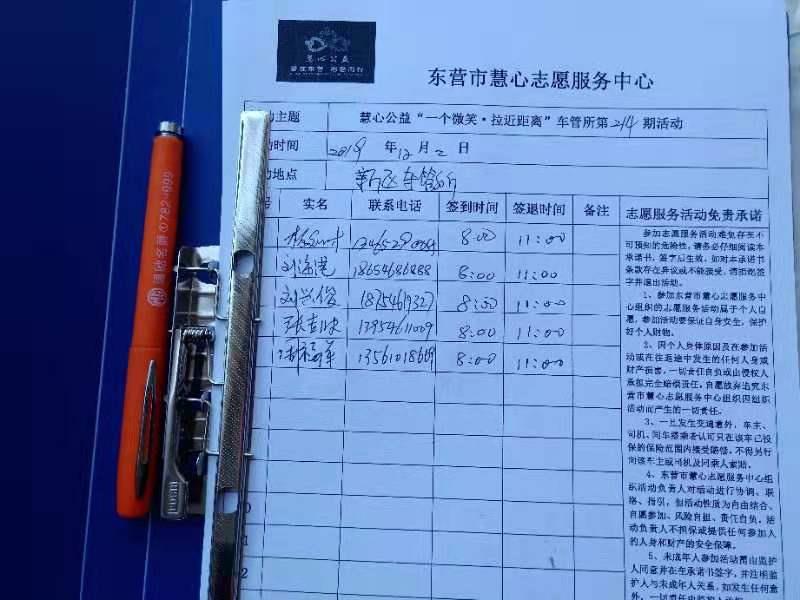 慧心公益
东营市慧心志愿服务中心
动主题 慧心公益“一个微笑·拉近距离”车管所第214期活动
动时间 2019年12月2日
动地点 新区车管所
号 实名 联系电话 签到时间 签退时间 备注 志愿服务活动免责承诺
8:00 11:00
刘海港 18654686888 8:00 11:00
刘兴俊 18754619327 8:00 11:00
13954611009 8:00 11:00
13561018609 8:00 11:00
参加志愿服务活动难免存在不
可预知的危险性，请务必仔细阅读本
承诺书，签字后生效，如对本承诺书
条款存在异议或不能接受，请拒绝签
字并退出活动。
1、参加东营市慧心志愿服务中
心组织的志愿服务活动属于个人自
愿，参加活动要保证自身安全，保护
好个人财物。
2、因个人身体原因及在参加活
动或在往返途中发生的任何人身或
财产损害，一切责任自负或由侵权人
承担完全赔偿责任，自愿放弃追究东
营市慧心志愿服务中心组织因组织
活动而产生的一切责任。
3、一旦发生交通意外，车主、
司机、同车搭乘者认可只在该车已投
保的保险范围内接受赔偿，不得另行
向该车主或司机及同乘人索赔。
4、东营市慧心志愿服务中心组
织活动负责人对活动进行协调、联
络、指引，但活动性质为自由结合、
自愿参加、风险自担、责任自负，活
动负责人不担保或提供任何参加人
的人身和财产的安全保障。
5、未成年人参加活动需由监护
人同意并在在承诺书签字，并注明监
护人与未成年人关系，如发生任何意